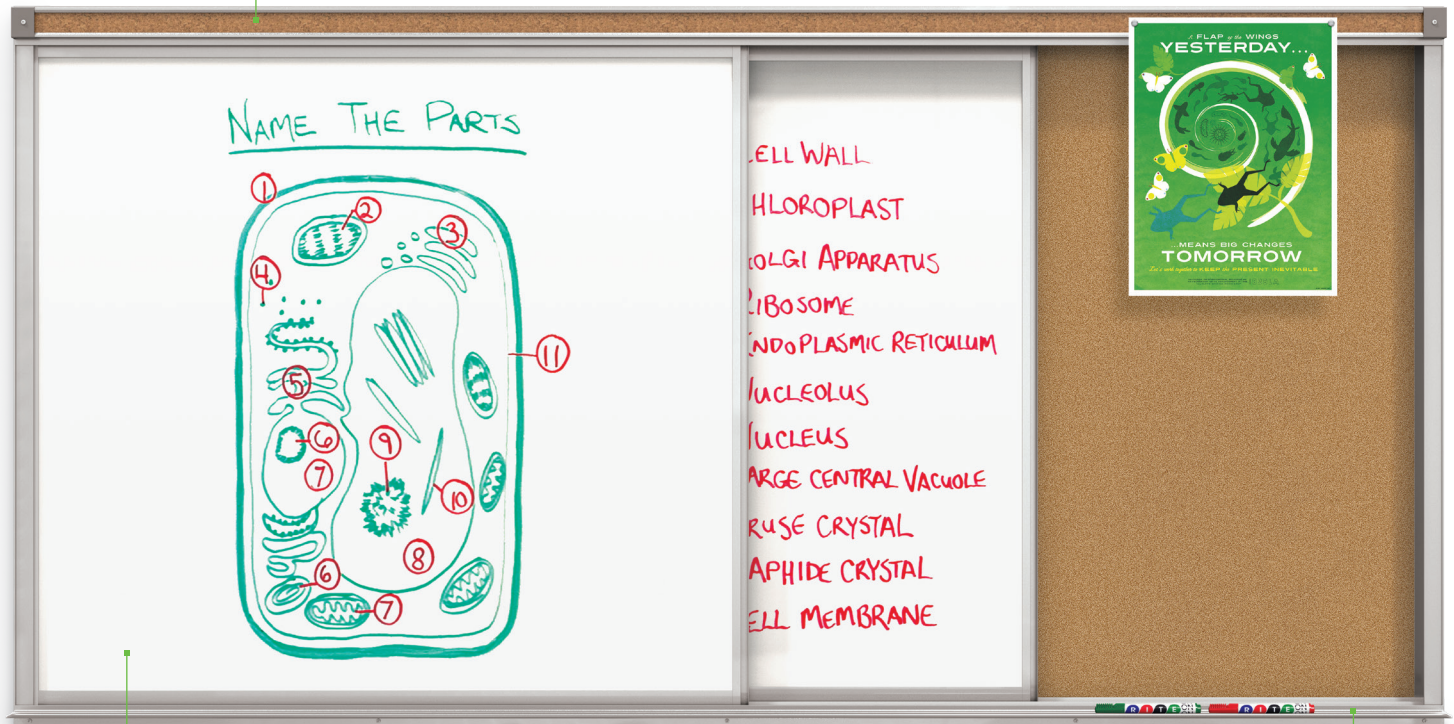 NAME THE PARTS
1
2
3
4
5
6
7
9
10
8
6
7
11
ELL WALL
HLOROPLAST
OLGI APPARATUS
RIBOSOME
ENDOPLASMIC RETICULUM
NUCLEOLUS
NUCLEUS
ARGE CENTRAL VACUOLE
RUSE CRYSTAL
APHIDE CRYSTAL
ELL MEMBRANE
A FLAP of the WINGS
YESTERDAY...
...MEANS BIG CHANGES
TOMORROW
Let's work together to KEEP the PRESENT INEVITABLE
RITEON
RITEON